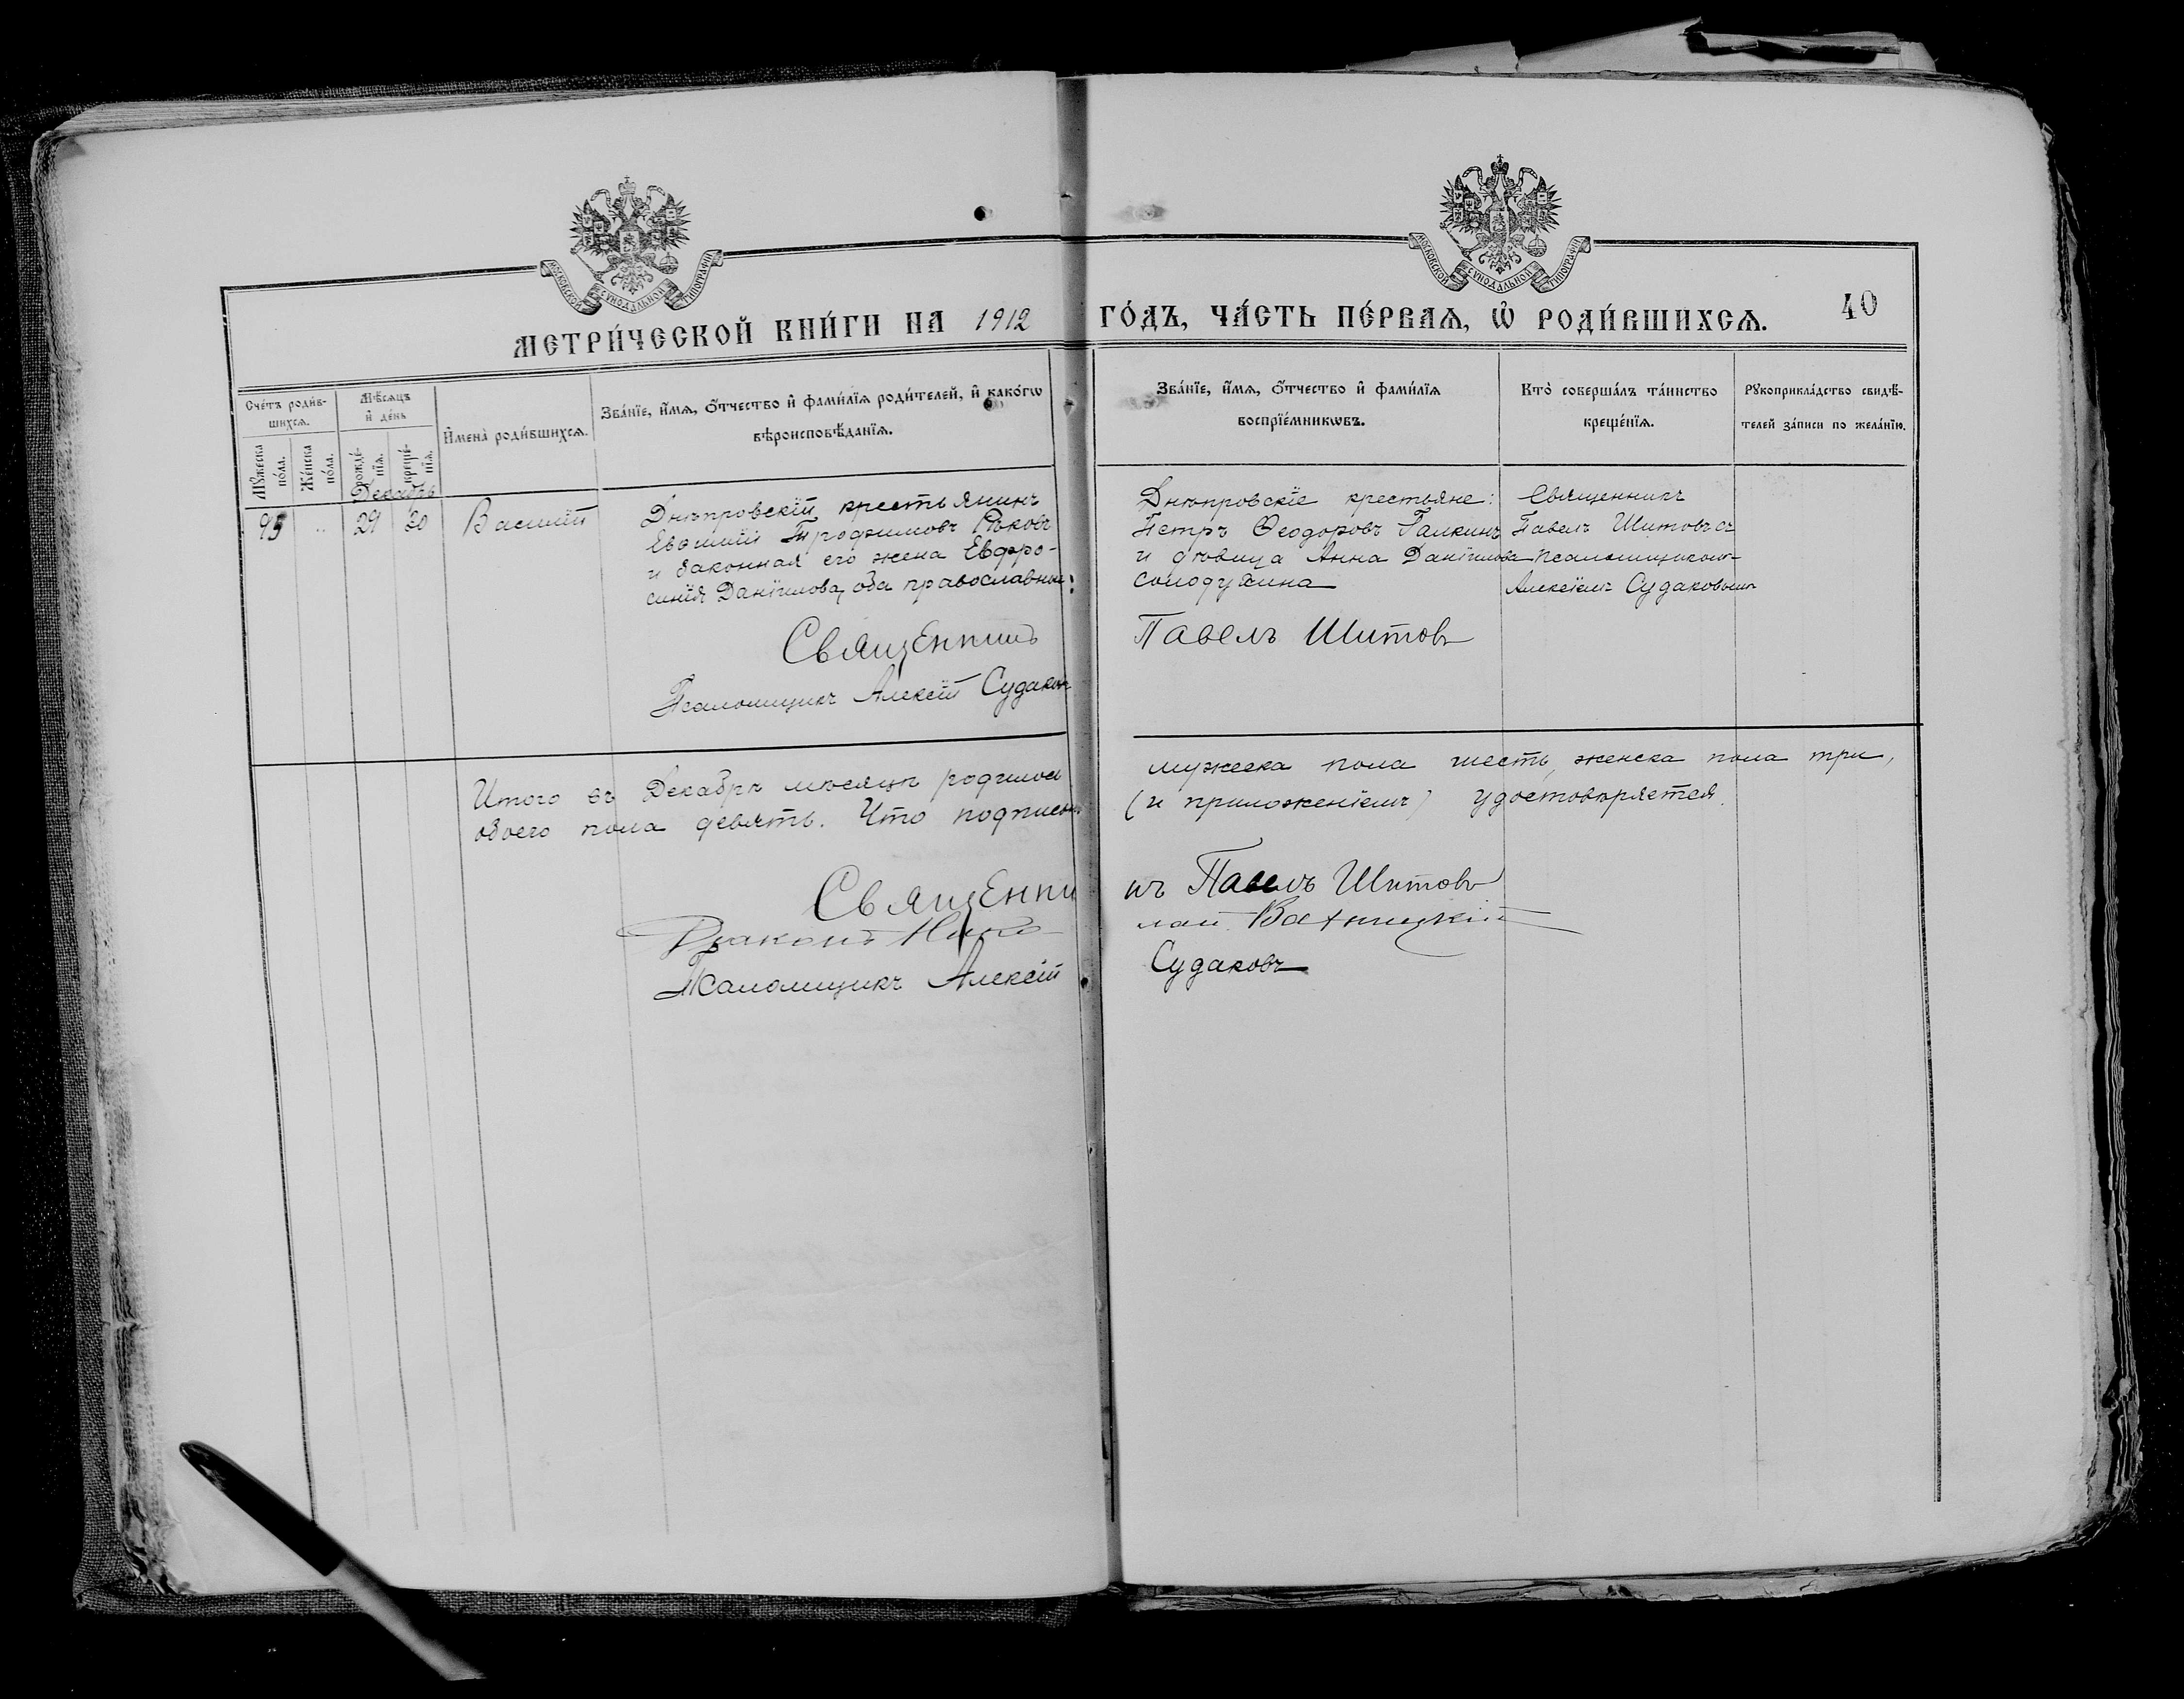 МОСКОВСКОЙ СѴНОДАЛЬНОЙ ТИПОГРАФІИ
МОСКОВСКОЙ СѴНОДАЛЬНОЙ ТИПОГРАФІИ
МЕТРИ́ЧЕСКОЙ КНИ́ГИ НА 1912 ГО́ДЪ, ЧА́СТЬ ПЕ́РВАѦ, Ѡ҆ РОДИ́ВШИХСѦ. 40
Сче́тъ роди́в-
шихсѧ.
Мꙋ́жеска по́ла.
Же́нска по́ла.
Мѣ́сѧцъ и҆ де́нь
рожде́-нїѧ.
креще́-нїѧ.
И҆мена̀ роди́вшихсѧ.
Зва́нїе, и҆́мѧ, ѻ҆́тчество и҆ фами́лїѧ роди́телей, и҆ како́гѡ
вѣроисповѣ́данїѧ.
Зва́нїе, и҆́мѧ, ѻ҆́тчество и҆ фами́лїѧ
воспрїе́мникѡвъ.
Кто̀ соверша́лъ та́инство
креще́нїѧ.
Рꙋкоприкла́дство свидѣ́-
телей за́писи по жела́нїю.
Декабрь
29 30 Василій
Днѣпровскій крестьянинъ
Евѳимій Трофимовъ
и законная его жена Евфро-
синія Даніилова, оба православные
Священникъ
Псаломщикъ Алексій Судаковъ
Днѣпровскіе крестьяне:
Петръ Ѳеодоровъ Галкинъ
и дѣвица Анна Даніилова
Солодухина
Павелъ Шитовъ
Священникъ
Павелъ Шитовъ съ
псаломщикомъ
Алексіемъ Судаковымъ
Итого въ Декабрѣ мѣсяцѣ родилось мужеска пола шесть, женска пола три,
обоего пола девять. Что подписомъ (и приложеніемъ) удостовѣряется.
Священникъ Павелъ Шитовъ
Діаконъ Николай
Псаломщикъ Алексій Судаковъ